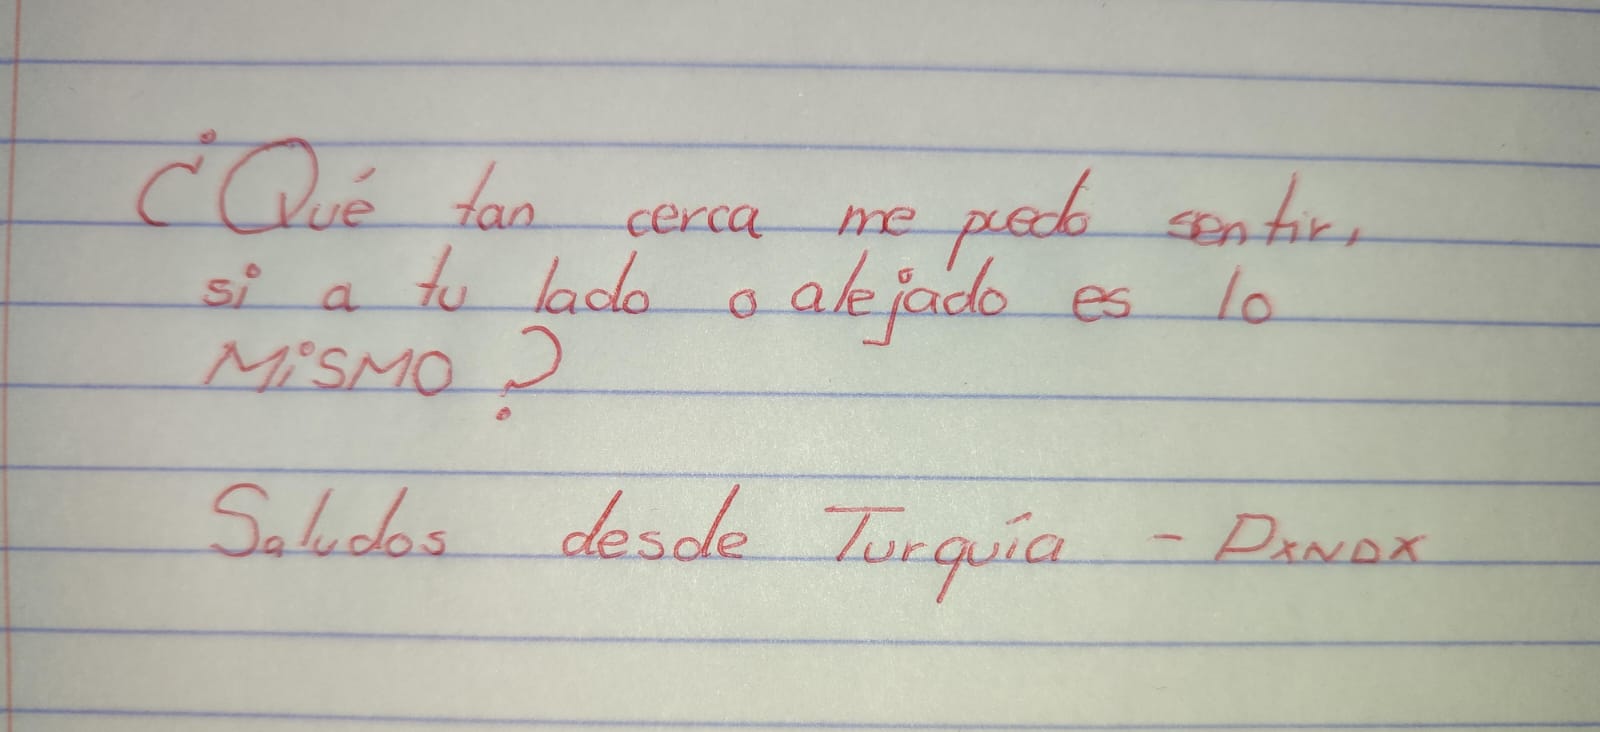 ¿Qué tan cerca me puedo sentir,
si a tu lado o alejado es lo
MiSMO?
Saludos desde Turquía - DXNDX